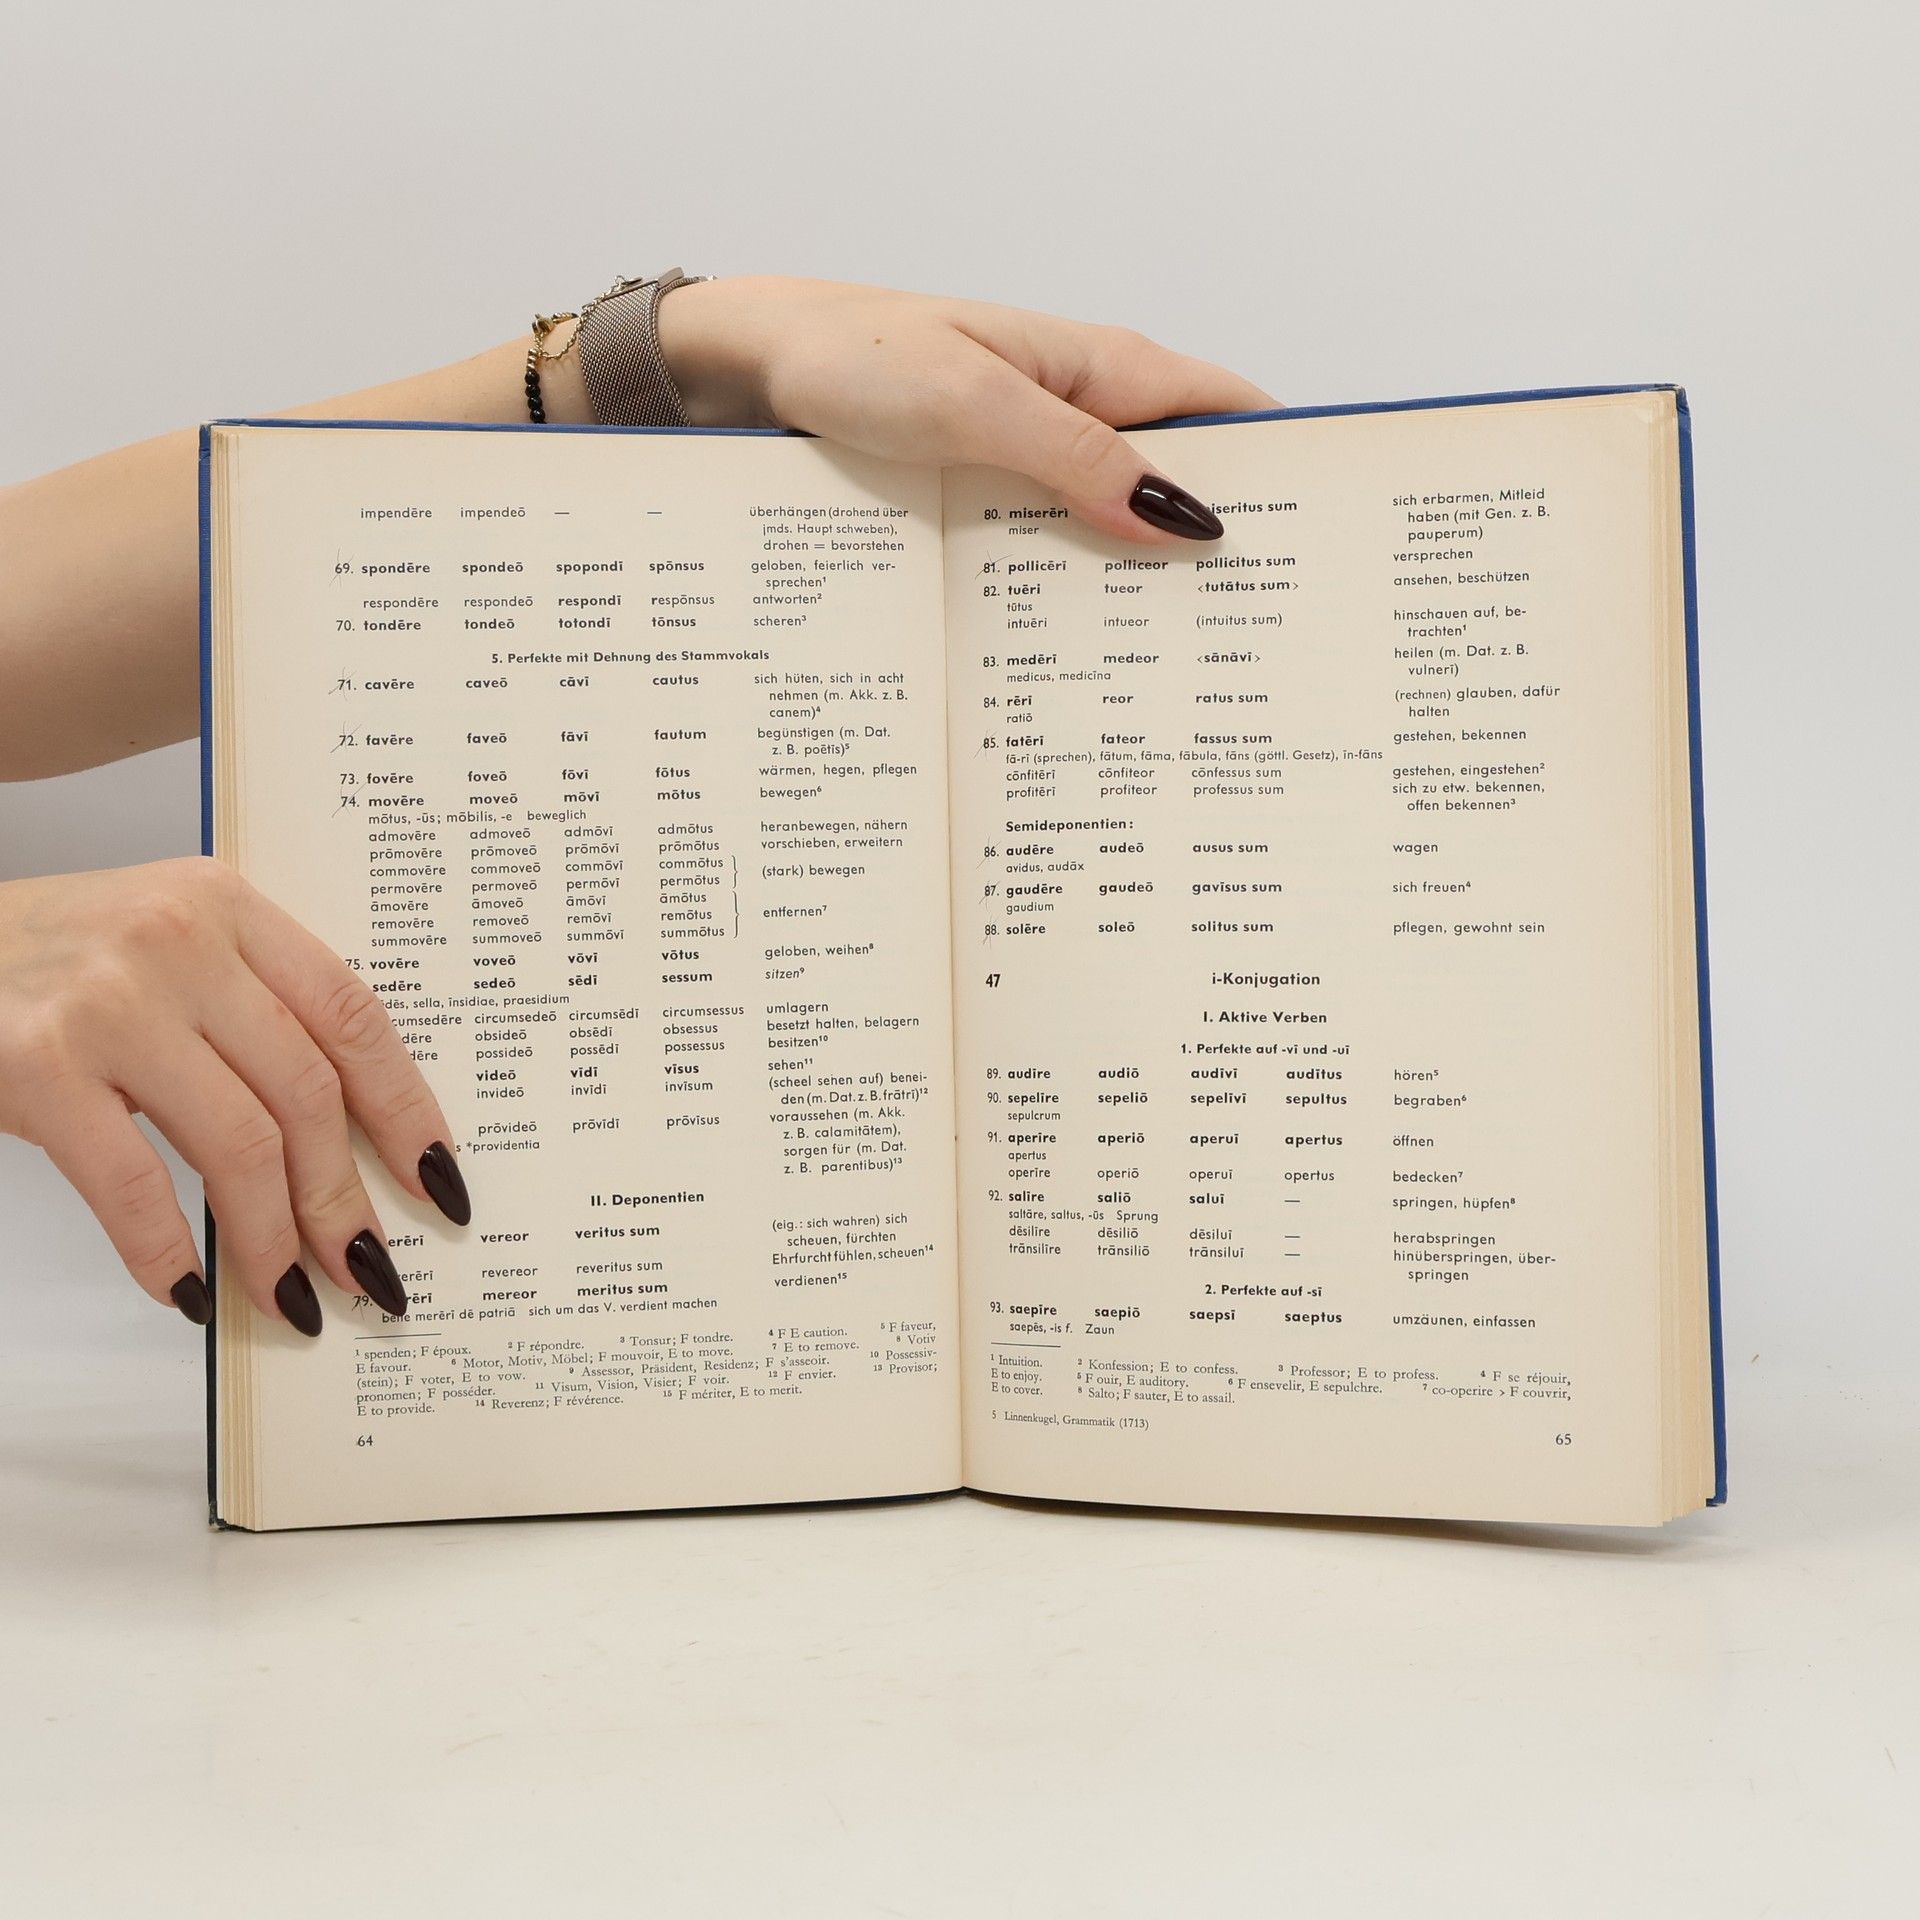 impendēre impendeō — — überhängen (drohend über
jmds. Haupt schweben),
drohen = bevorstehen
69. spondēre spondeō spopondī spōnsus geloben, feierlich ver-
sprechen¹
respondēre respondeō respondī respōnsus antworten²
70. tondēre tondeō totondī tōnsus scheren³
5. Perfekte mit Dehnung des Stammvokals
71. cavēre caveō cāvī cautus sich hüten, sich in acht
nehmen (m. Akk. z. B.
canem)⁴
72. favēre faveō fāvī fautum begünstigen (m. Dat.
z. B. poētīs)⁵
73. fovēre foveō fōvī fōtus wärmen, hegen, pflegen
74. movēre moveō mōvī mōtus bewegen⁶
mōtus, -ūs; mōbilis, -e beweglich
admovēre admoveō admōvī admōtus heranbewegen, nähern
prōmovēre prōmoveō prōmōvī prōmōtus vorschieben, erweitern
commovēre commoveō commōvī commōtus
permovēre permoveō permōvī permōtus (stark) bewegen
āmovēre āmoveō āmōvī āmōtus
removēre removeō remōvī remōtus entfernen⁷
summovēre summoveō summōvī summōtus
75. vovēre voveō vōvī vōtus geloben, weihen⁸
sedēre sedeō sēdī sessum sitzen⁹
sella, īnsidiae, praesidium
circumsedeō circumsēdī circumsessus umlagern
obsideō obsēdī obsessus besetzt halten, belagern
possideō possēdī possessus besitzen¹⁰
videō vīdī vīsus sehen¹¹
invideō invīdī invīsum (scheel sehen auf) benei-
den (m. Dat. z. B. frātrī)¹²
prōvideō prōvīdī prōvīsus voraussehen (m. Akk.
z. B. calamitātem),
*providentia sorgen für (m. Dat.
z. B. parentibus)¹³
II. Deponentien
vereor veritus sum (eig.: sich wahren) sich
scheuen, fürchten
revereor reveritus sum Ehrfurcht fühlen, scheuen¹⁴
79. mereor meritus sum verdienen¹⁵
bene merērī dē patriā sich um das V. verdient machen
¹ spenden; F époux. ² F répondre. ³ Tonsur; F tondre. ⁴ F E caution. ⁵ F faveur,
E favour. ⁶ Motor, Motiv, Möbel; F mouvoir, E to move. ⁷ E to remove. ⁸ Votiv
(stein); F voter, E to vow. ⁹ Assessor, Präsident, Residenz; F s'asseoir. ¹⁰ Possessiv-
pronomen; F posséder. ¹¹ Visum, Vision, Visier; F voir. ¹² F envier. ¹³ Provisor;
E to provide. ¹⁴ Reverenz; F révérence. ¹⁵ F mériter, E to merit.
64
80. miserērī sum sich erbarmen, Mitleid
miser haben (mit Gen. z. B.
pauperum)
81. pollicērī polliceor pollicitus sum versprechen
82. tuērī tueor <tutātus sum> ansehen, beschützen
tūtus
intuērī intueor (intuitus sum) hinschauen auf, be-
trachten¹
83. medērī medeor <sānāvī> heilen (m. Dat. z. B.
medicus, medicīna vulnerī)
84. rērī reor ratus sum (rechnen) glauben, dafür
ratiō halten
85. fatērī fateor fassus sum gestehen, bekennen
fā-rī (sprechen), fātum, fāma, fābula, fāns (göttl. Gesetz), īn-fāns
cōnfitērī cōnfiteor cōnfessus sum gestehen, eingestehen²
profitērī profiteor professus sum sich zu etw. bekennen,
offen bekennen³
Semideponentien:
86. audēre audeō ausus sum wagen
avidus, audāx
87. gaudēre gaudeō gavīsus sum sich freuen⁴
gaudium
88. solēre soleō solitus sum pflegen, gewohnt sein
47 i-Konjugation
I. Aktive Verben
1. Perfekte auf -vī und -uī
89. audīre audiō audīvī audītus hören⁵
90. sepelīre sepeliō sepelīvī sepultus begraben⁶
sepulcrum
91. aperīre aperiō aperuī apertus öffnen
apertus
operīre operiō operuī opertus bedecken⁷
92. salīre saliō saluī — springen, hüpfen⁸
saltāre, saltus, -ūs Sprung
dēsilīre dēsiliō dēsiluī — herabspringen
trānsilīre trānsiliō trānsiluī — hinüberspringen, über-
springen
2. Perfekte auf -sī
93. saepīre saepiō saepsī saeptus umzäunen, einfassen
saepēs, -is f. Zaun
¹ Intuition. ² Konfession; E to confess. ³ Professor; E to profess. ⁴ F se réjouir,
E to enjoy. ⁵ F ouir, E auditory. ⁶ F ensevelir, E sepulchre. ⁷ co-operire > F couvrir,
E to cover. ⁸ Salto; F sauter, E to assail.
5 Linnenkugel, Grammatik (1713)
65